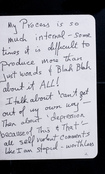 My Process is so
much internal - some
times it is difficult to
Produce more than
just words & Blah Blah
about it ALL!
I talk about 'can't get
out of my own way' -
then about 'depression
because of This & That' -
all self violent comments
like I am stupid - worthless